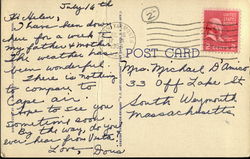 July 16th
Hi Helen,
I have been down
here for a week with
my father & mother.
The weather has
been wonderful.
There is nothing
to compare to
Cape air.
Hope to see you
sometime soon.
By the way, do you
ever hear from
Love,
Doris
2
POST CARD
Mrs. Michael D'Amico
33 Off Lake St
South Weymouth
Massachusetts